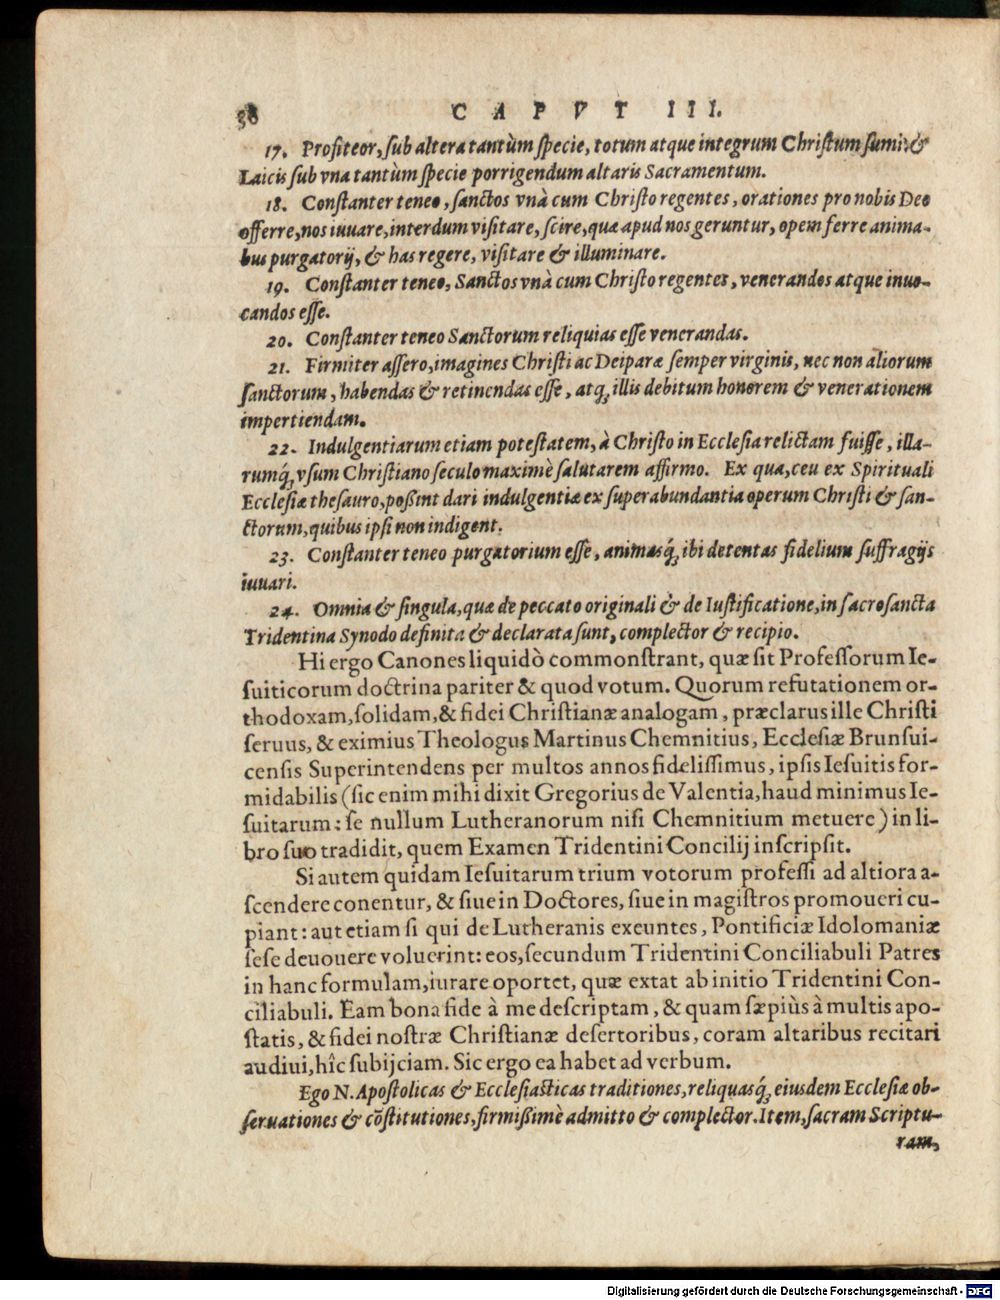 38 CAPVT III.
17. Profiteor, sub altera tantùm specie, totum atque integrum Christum sumi: &
Laicis sub vna tantùm specie porrigendum altaris Sacramentum.
18. Constanter teneo, sanctos vnà cum Christo regentes, orationes pro nobis Deo
offerre, nos iuuare, interdum visitare, scire, quæ apud nos geruntur, opem ferre anima-
bus purgatorij, & has regere, visitare & illuminare.
19. Constanter teneo, Sanctos vnà cum Christo regentes, venerandos atque inuo-
candos esse.
20. Constanter teneo Sanctorum reliquias esse venerandas.
21. Firmiter assero, imagines Christi ac Deiparæ semper virginis, nec non aliorum
sanctorum, habendas & retinendas esse, atq́; illis debitum honorem & venerationem
impertiendam.
22. Indulgentiarum etiam potestatem, à Christo in Ecclesia relictam fuisse, illa-
rumq́; vsum Christiano seculo maximè salutarem affirmo. Ex qua, ceu ex Spirituali
Ecclesiæ thesauro, poßint dari indulgentiæ ex superabundantia operum Christi & san-
ctorum, quibus ipsi non indigent.
23. Constanter teneo purgatorium esse, animasq́; ibi detentas fidelium suffragijs
iuuari.
24. Omnia & singula, quæ de peccato originali & de Iustificatione, in sacrosancta
Tridentina Synodo definita & declarata sunt, complector & recipio.
Hi ergo Canones liquidò commonstrant, quæ sit Professorum Ie-
suiticorum doctrina pariter & quod votum. Quorum refutationem or-
thodoxam, solidam, & fidei Christianæ analogam, præclarus ille Christi
seruus, & eximius Theologus Martinus Chemnitius, Ecclesiæ Brunsui-
censis Superintendens per multos annos fidelissimus, ipsis Iesuitis for-
midabilis (sic enim mihi dixit Gregorius de Valentia, haud minimus Ie-
suitarum: se nullum Lutheranorum nisi Chemnitium metuere) in li-
bro suo tradidit, quem Examen Tridentini Concilij inscripsit.
Si autem quidam Iesuitarum trium votorum professi ad altiora a-
scendere conentur, & siue in Doctores, siue in magistros promoueri cu-
piant: aut etiam si qui de Lutheranis exeuntes, Pontificiæ Idolomaniæ
sese deuouere voluerint: eos, secundum Tridentini Conciliabuli Patres
in hanc formulam, iurare oportet, quæ extat ab initio Tridentini Con-
ciliabuli. Eam bona fide à me descriptam, & quam sæpiùs à multis apo-
statis, & fidei nostræ Christianæ desertoribus, coram altaribus recitari
audiui, hîc subijciam. Sic ergo ea habet ad verbum.
Ego N. Apostolicas & Ecclesiasticas traditiones, reliquasq́; eiusdem Ecclesiæ ob-
seruationes & cõstitutiones, firmißimè admitto & complector. Item, sacram Scriptu-
ram,
Digitalisierung gefördert durch die Deutsche Forschungsgemeinschaft - DFG